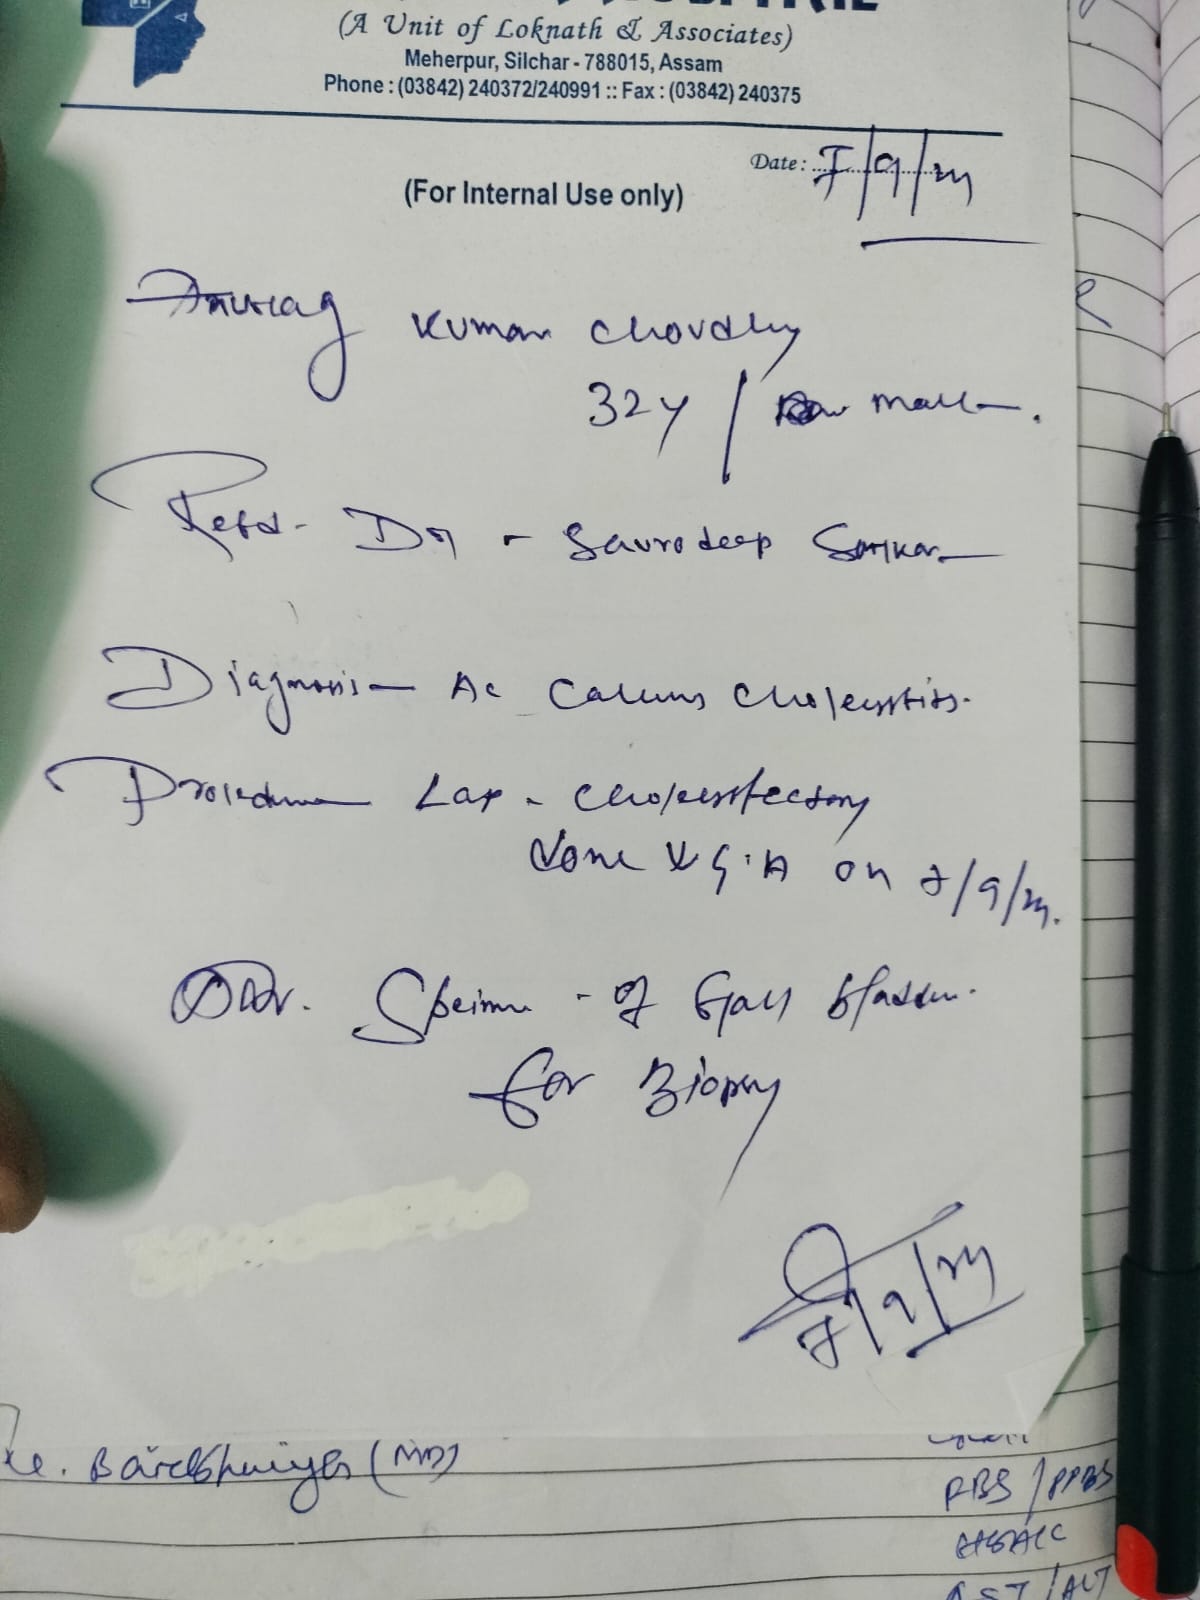 (A Unit of Loknath & Associates)
Meherpur, Silchar - 788015, Assam
Phone : (03842) 240372/240991 :: Fax : (03842) 240375
Date: 7/9/24
(For Internal Use only)
Anurag Kumar Choudhry
32y / Male
Refd - Dr - Sauradeep Sarkar
Diagnosis - Ac Calculus Cholecystitis.
Procedure Lap - Cholecystectomy
done G.A on 7/9/24.
Specimen - of Gall bladder.
for Biopsy
7/9/24
(MD)
RBS / PPBS
HBA1C
AST / ALT